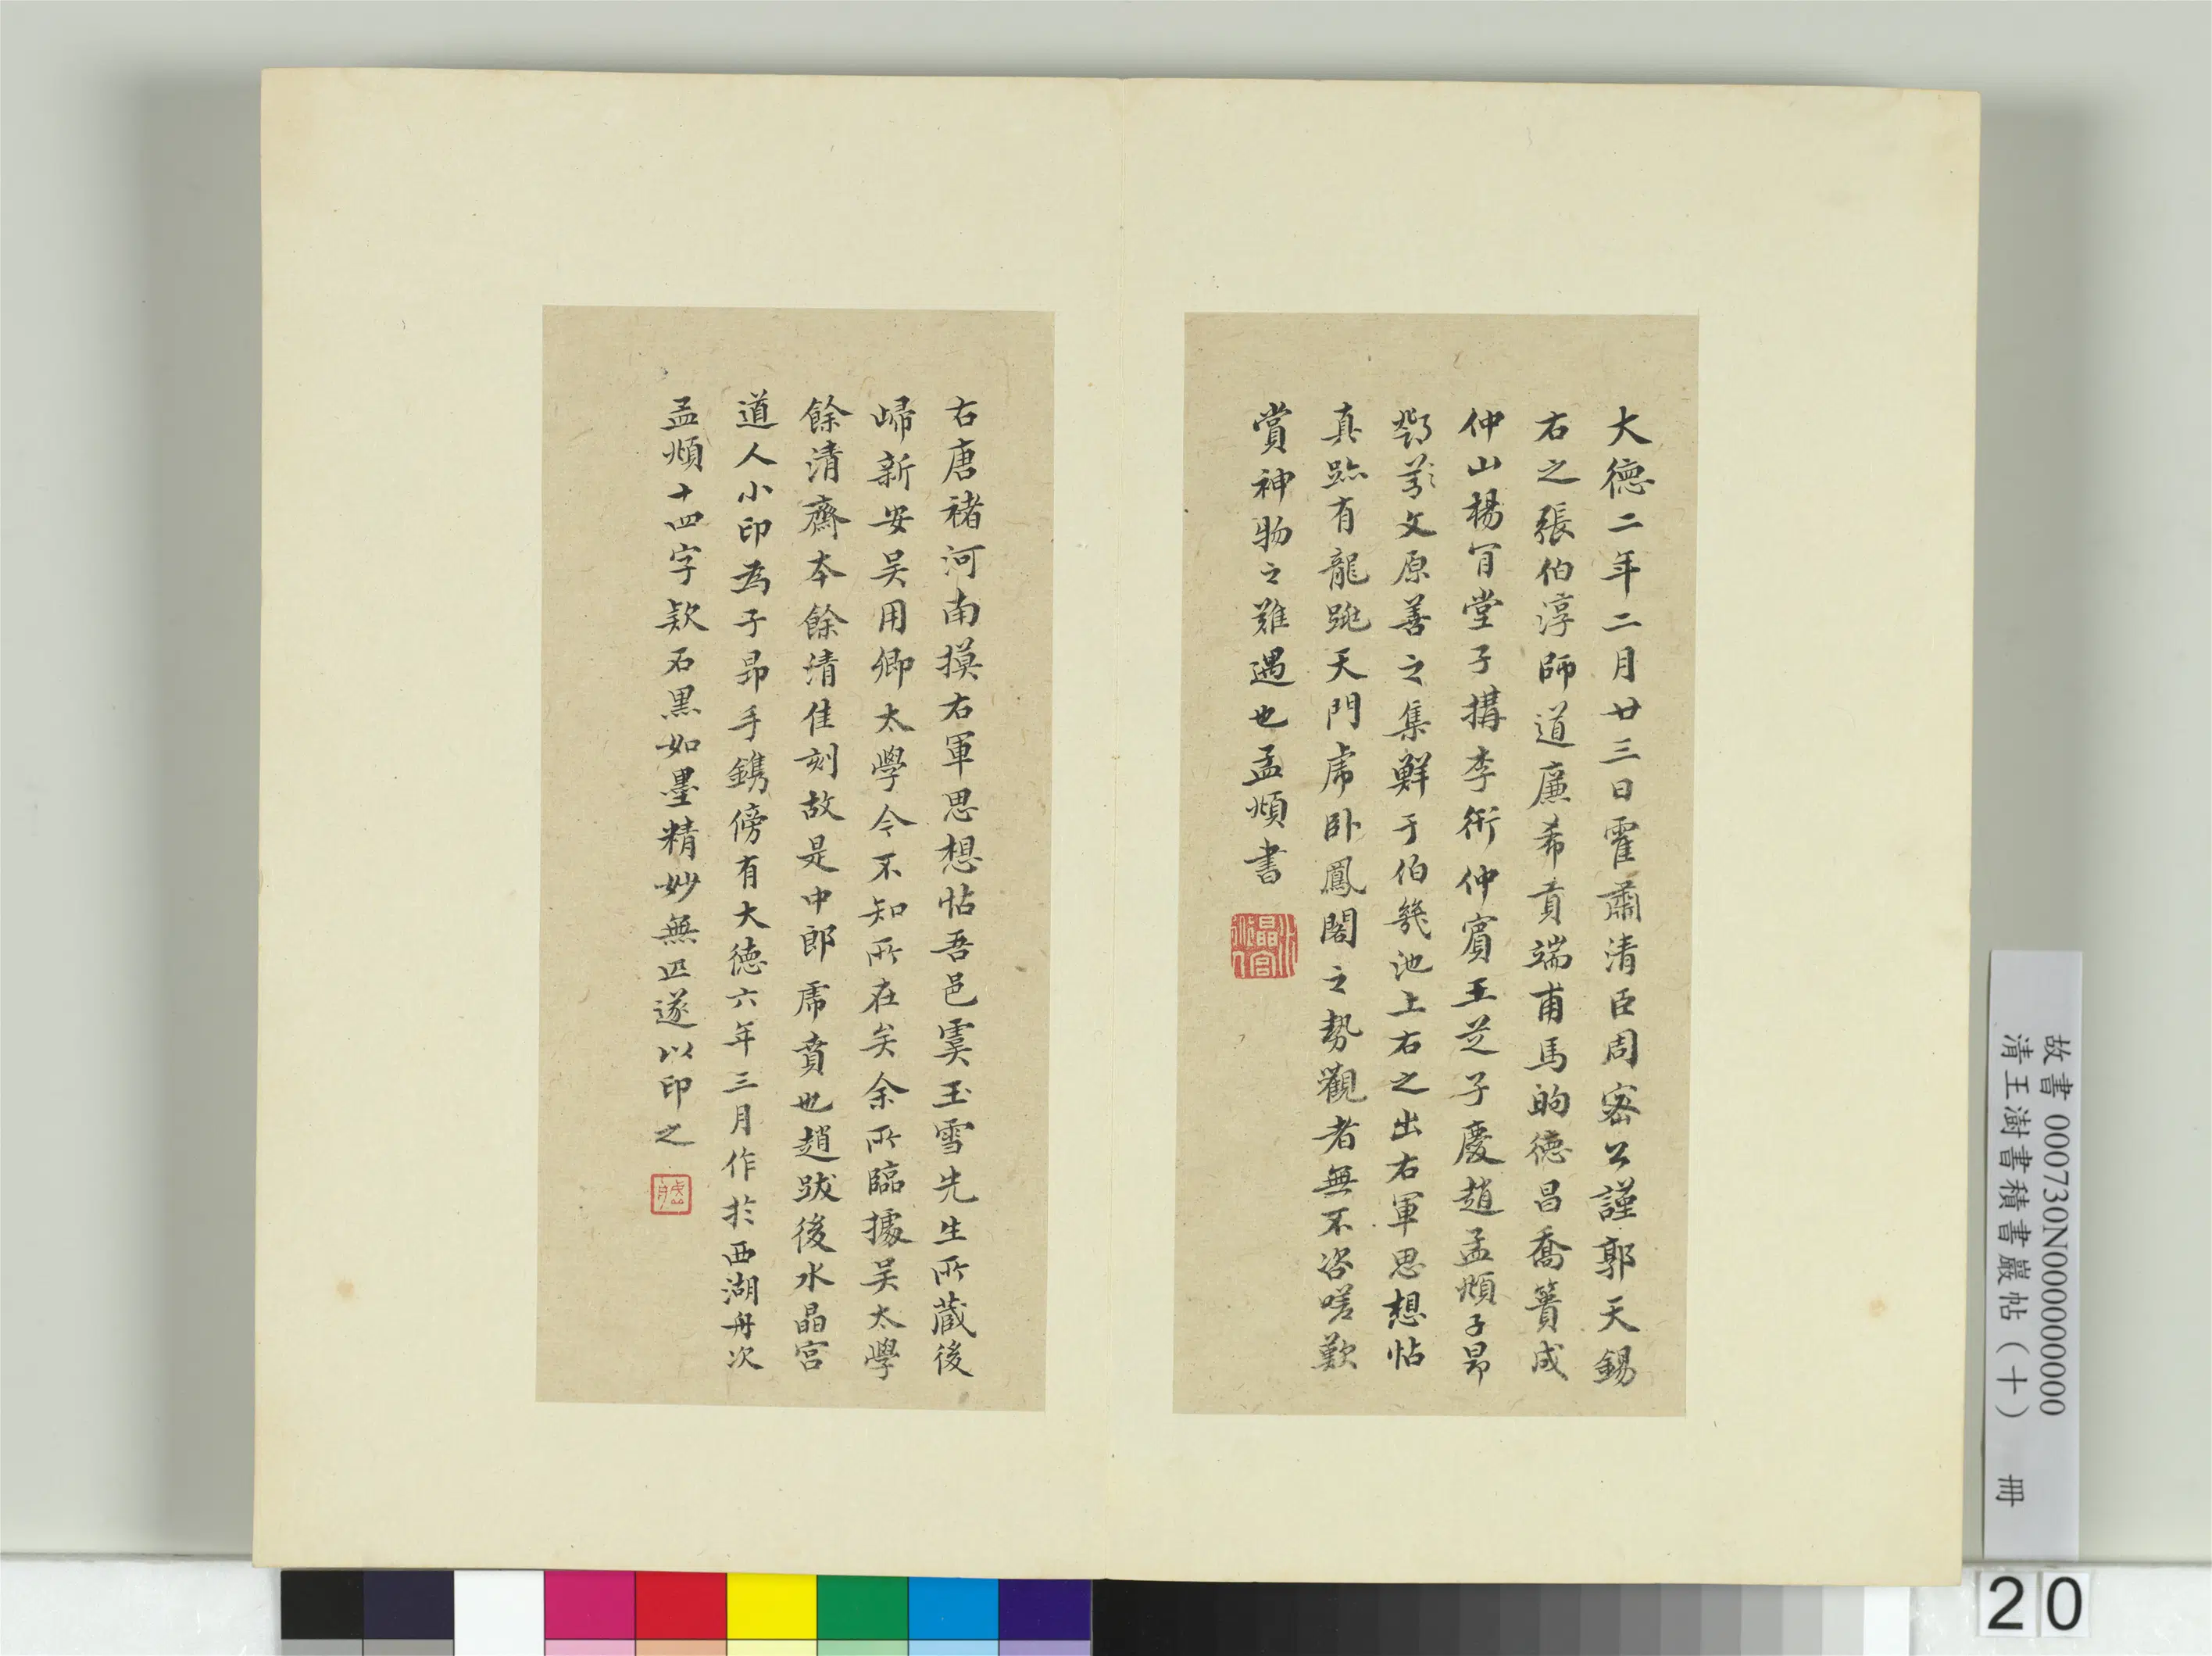 大德二年二月廿三日霍肅清臣周密公謹郭天錫
右之張伯淳師道廉希貢端甫馬昫德昌喬簣成
仲山楊肯堂子搆李衎仲賓王芝子慶趙孟頫子昂
鄧文原善之集鮮于伯幾池上右之出右軍思想帖
真跡有龍跳天門虎臥鳳閣之勢觀者無不咨嗟歎
賞神物之難遇也孟頫書
水晶宮道人
右唐褚河南摸右軍思想帖吾邑虞玉雪先生所蔵後
歸新安吴用卿太學今不知所在矣余所臨據吴太學
餘清齋本餘清佳刻故是中郎虎賁也趙跋後水晶宮
道人小印為子昂手鐫傍有大德六年三月作於西湖舟次
孟頫十四字款石黑如墨精妙無匹遂以印之
故書 000730N000000000
清王澍書積書巖帖（十） 冊
20